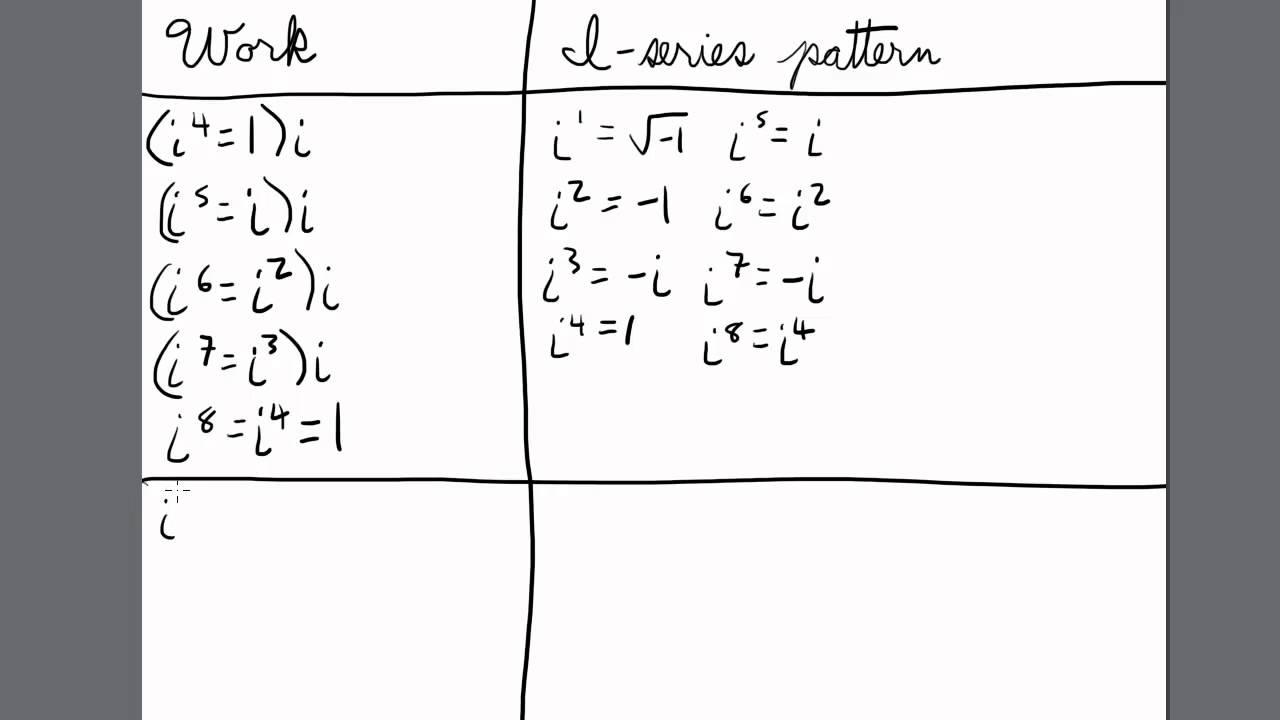 Work
I-series pattern
(i⁴=1)i
(i⁵=i)i
(i⁶=i²)i
(i⁷=i³)i
i⁸=i⁴=1
i¹=√-1 i⁵=i
i²=-1 i⁶=i²
i³=-i i⁷=-i
i⁴=1 i⁸=i⁴
i